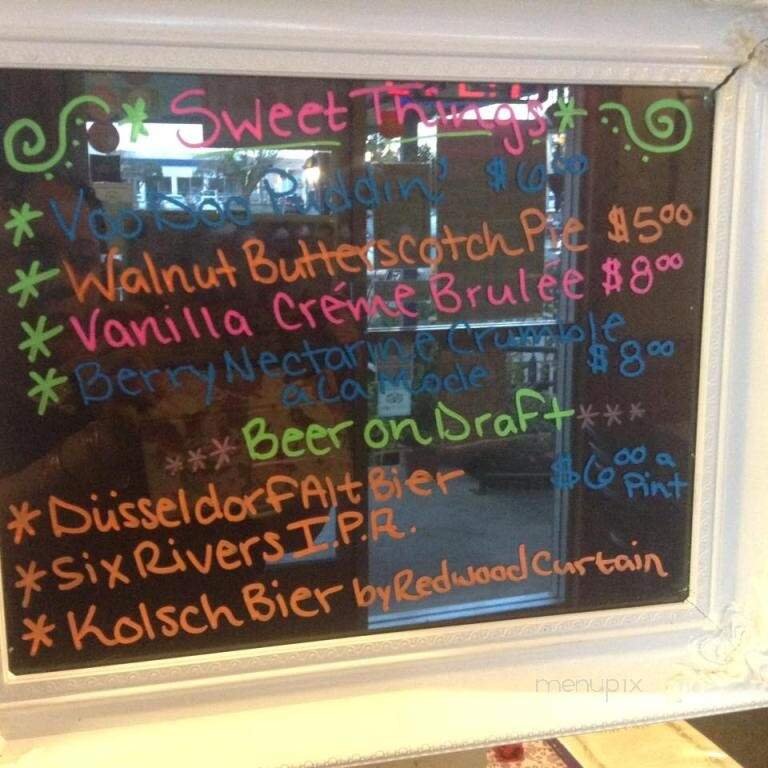 * Sweet Things *
* VooDoo Puddin' $6.00
* Walnut Butterscotch Pie $5.00
* Vanilla Créme Brulee $8.00
* Berry Nectarine Crumble
a La Mode $8.00
*** Beer on Draft ***
* Düsseldorf Alt Bier $6.00 a
Pint
* Six Rivers I.P.A.
* Kolsch Bier by Redwood Curtain
menupix